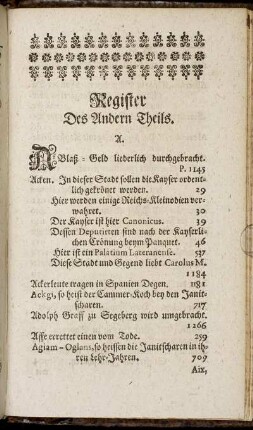 Register
Des Andern Theils.
A.
ABlaß-Geld liederlich durchgebracht.
p. 1145
Acken. In dieser Stadt sollen die Kayser ordent-
lich gekrönet werden. 29
Hier werden einige Reichs-Kleinodien ver-
wahret. 30
Der Kayser ist hier Canonicus. 39
Dessen Deputirten sind nach der Kayserli-
chen Crönung beym Panquet. 46
Hier ist ein Palatium Lateranense. 537
Diese Stadt und Gegend liebt Carolus M.
1184
Ackerleute tragen in Spanien Degen. 1181
so heist der Cammer-Koch bey den Janit-
scharen. 717
Adolph Graff zu Segeberg wird umgebracht.
1266
Affe errettet einen vom Tode. 259
Agiam-Oglans, so heissen die Janitscharen in ih-
ren Lehr-Jahren. 709
Aix,